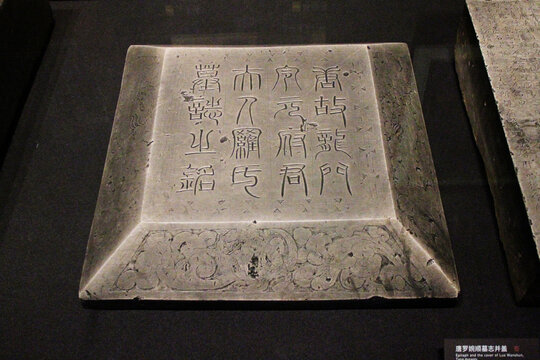 唐故龍門
令元府君
夫人羅氏
墓誌之銘
唐罗婉顺墓志并盖
Epitaph and the cover of Luo Wanshun,
Tang dynasty